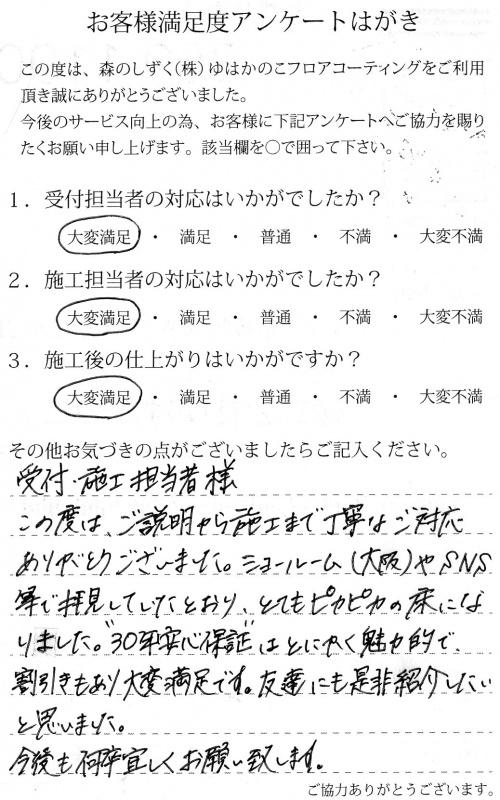 お客様満足度アンケートはがき
この度は、森のしずく（株）ゆはかのこフロアコーティングをご利用
頂き誠にありがとうございました。
今後のサービス向上の為、お客様に下記アンケートへご協力を賜り
たくお願い申し上げます。該当欄を○で囲って下さい。
1．受付担当者の対応はいかがでしたか？
大変満足 ・ 満足 ・ 普通 ・ 不満 ・ 大変不満
2．施工担当者の対応はいかがでしたか？
大変満足 ・ 満足 ・ 普通 ・ 不満 ・ 大変不満
3．施工後の仕上がりはいかがですか？
大変満足 ・ 満足 ・ 普通 ・ 不満 ・ 大変不満
その他お気づきの点がございましたらご記入ください。
受付・施工担当者様
この度は、ご説明から施工まで丁寧なご対応
ありがとうございました。ショールーム（大阪）やSNS
等で拝見していたとおり、とてもピカピカの床にな
りました。"30年安心保証"はとにかく魅力的で、
割引きもあり大変満足です。友達にも是非紹介したい
と思いました。
今後も何卒宜しくお願い致します。
ご協力ありがとうございます。